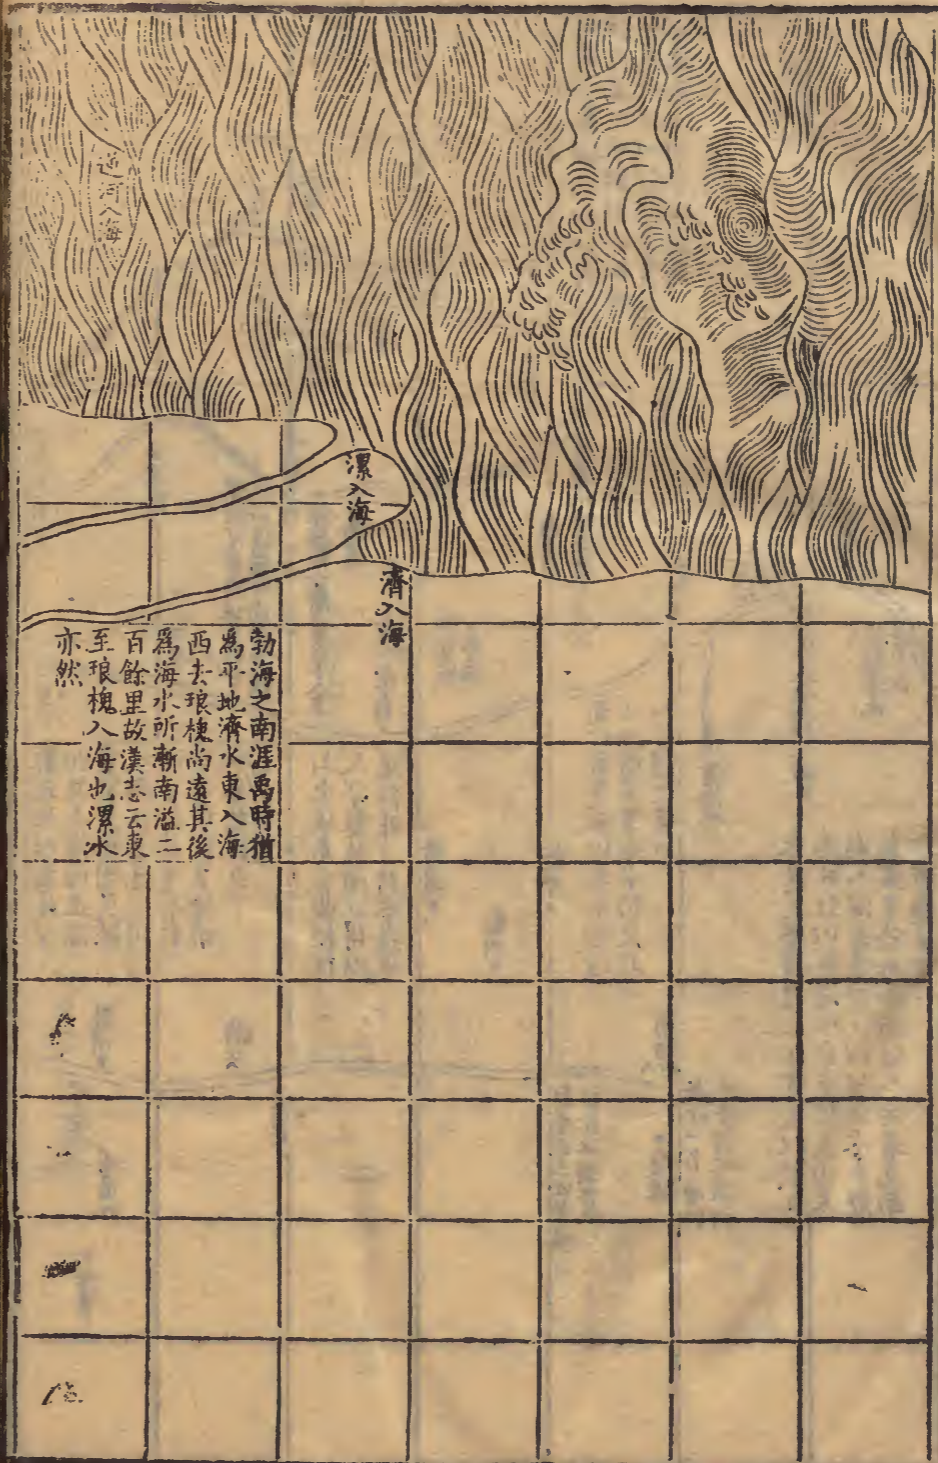 逆河入海
漯入海
濟入海
勃海之南涯禹時猶
爲平地濟水東入海
西去琅槐尚遠其後
爲海水所漸南溢二
百餘里故漢志云東
至琅槐入海也漯水
亦然